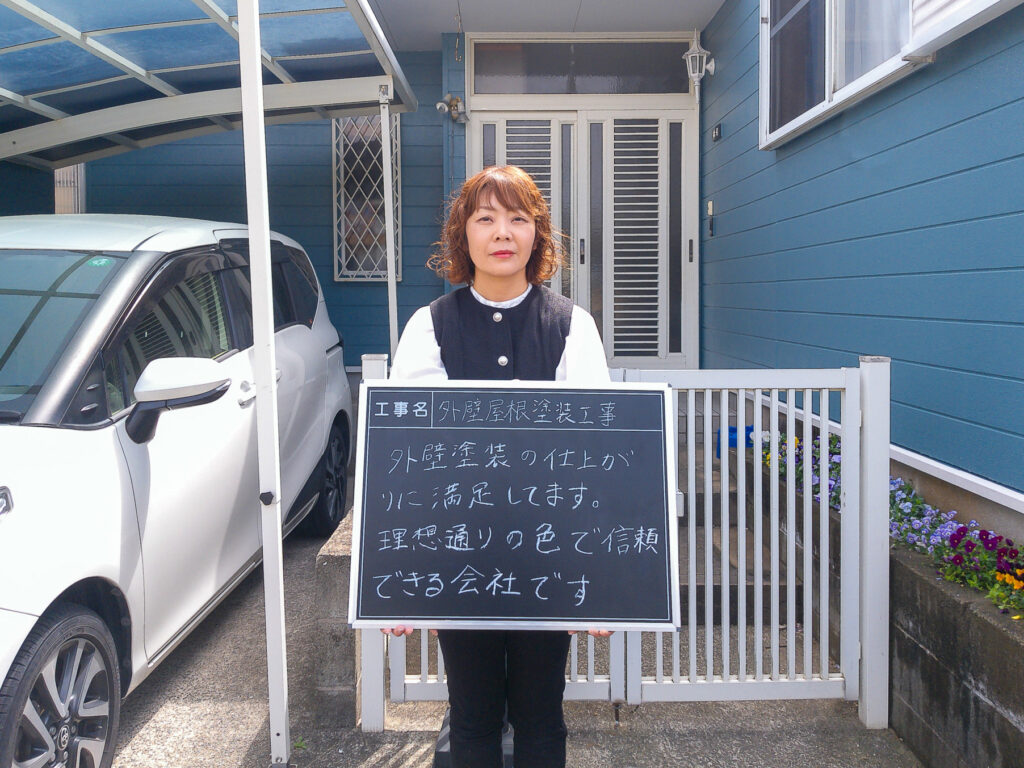 工事名 外壁屋根塗装工事
外壁塗装の仕上が
りに満足してます。
理想通りの色で信頼
できる会社です